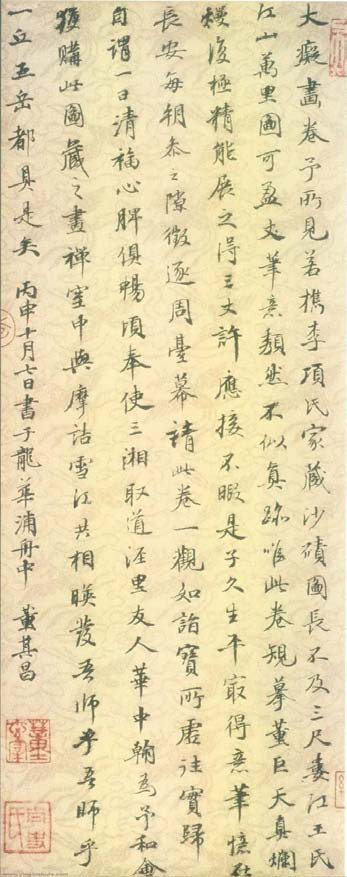 大癡畫卷予所見若檇李項氏家藏沙磧圖長不及三尺婁江王氏
江山萬里圖可盈丈筆意頹然不似真跡唯此卷規摹董巨天真爛
熳復極精能展之得三丈許應接不暇是子久生平㝡得意筆憶在
長安每朝參之隙徵逐周臺幕請此卷一觀如詣寶所虛往實歸
自謂一日清福心脾俱暢頃奉使三湘取道涇里友人華中翰為予和會
獲購此圖藏之畫禪室中與摩詰雪江共相暎發吾師乎吾師乎
一丘五岳都具是矣丙申十月七日書于龍華浦舟中董其昌